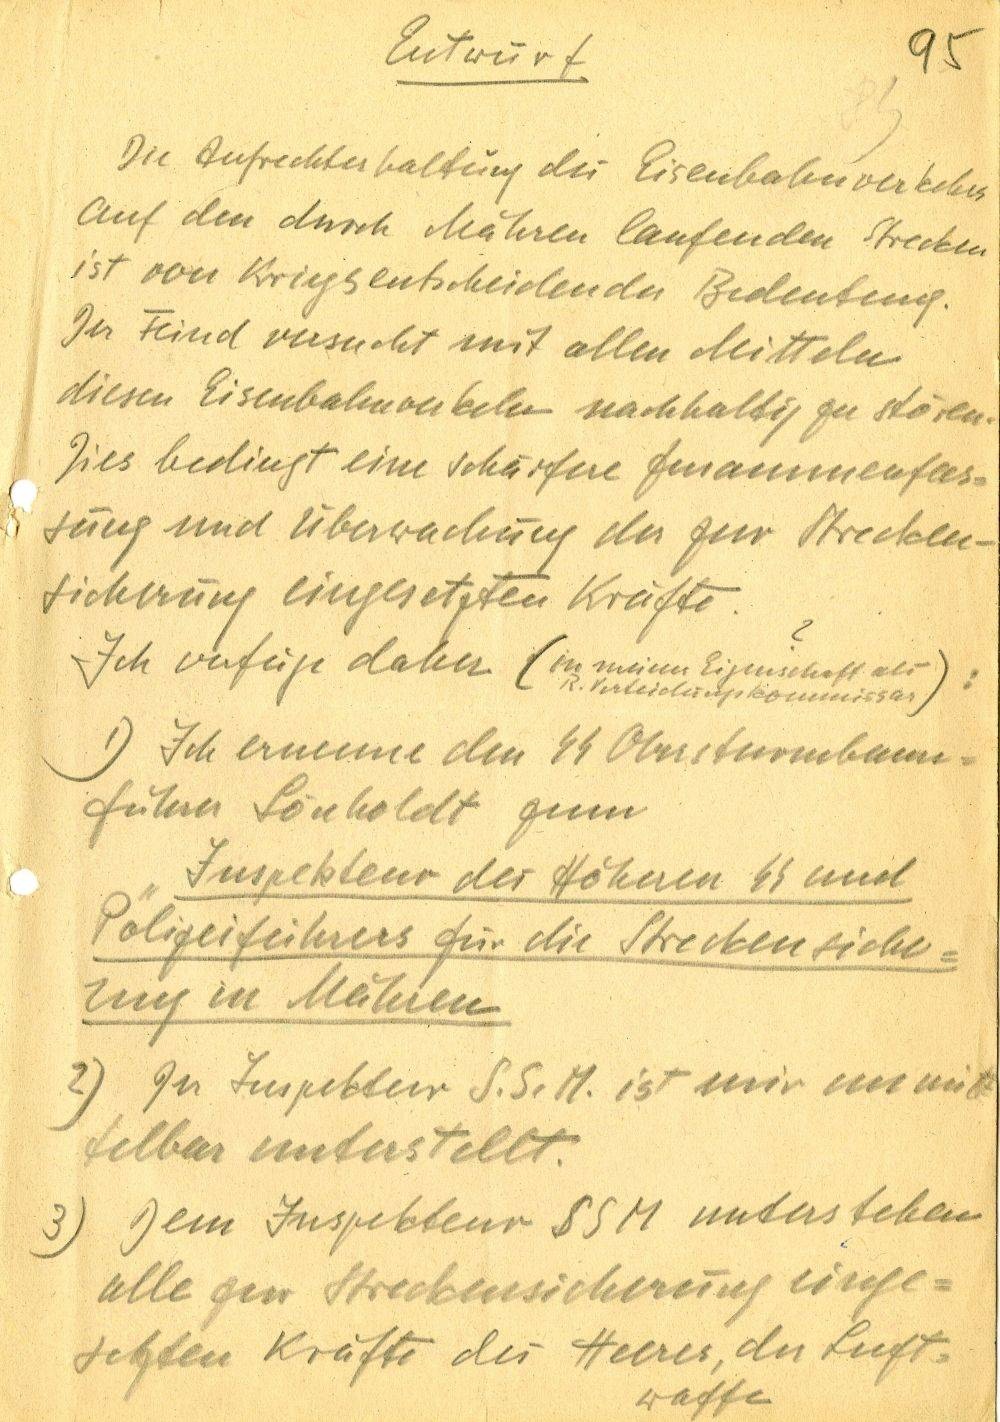 Entwurf
95
Die Aufrechterhaltung des Eisenbahnverkehrs
auf den durch Mähren laufenden Strecken
ist von kriegsentscheidender Bedeutung.
Der Feind versucht mit allen Mitteln
diesen Eisenbahnverkehr nachhaltig zu stören.
Dies bedingt eine schärfere Zusammenfas=
sung und Überwachung der zur Strecken-
sicherung eingesetzten Kräfte.
?
Ich verfüge daher (in meiner Eigenschaft als
R. Verteidigungskommissar) :
1) Ich ernenne den SS Obersturmbann=
führer Sönholdt zum
"Inspekteur des Höheren SS und
Polizeiführers für die Streckensiche=
rung in Mähren
2) Der Inspekteur S.S.M. ist mir unmit=
telbar unterstellt.
3) Dem Inspekteur SSM unterstehen
alle zur Streckensicherung einge=
setzten Kräfte des Heeres, der Luft=
waffe